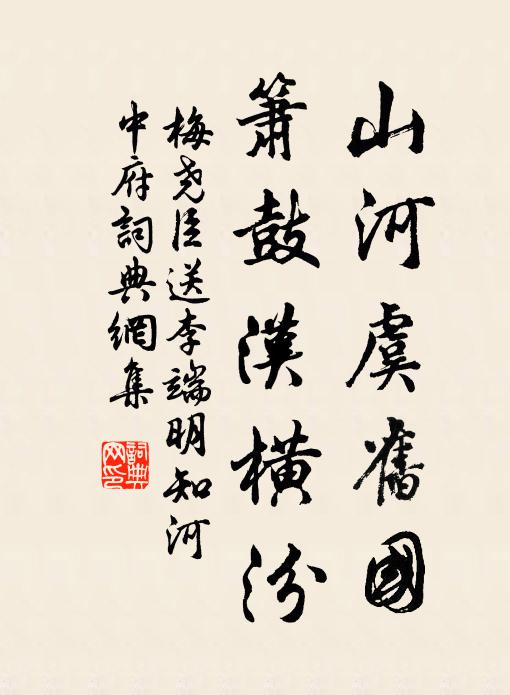 山河虞舊國
簫鼓漢橫汾
梅堯臣送李端明知河
中府詞典網集
詞典
网印